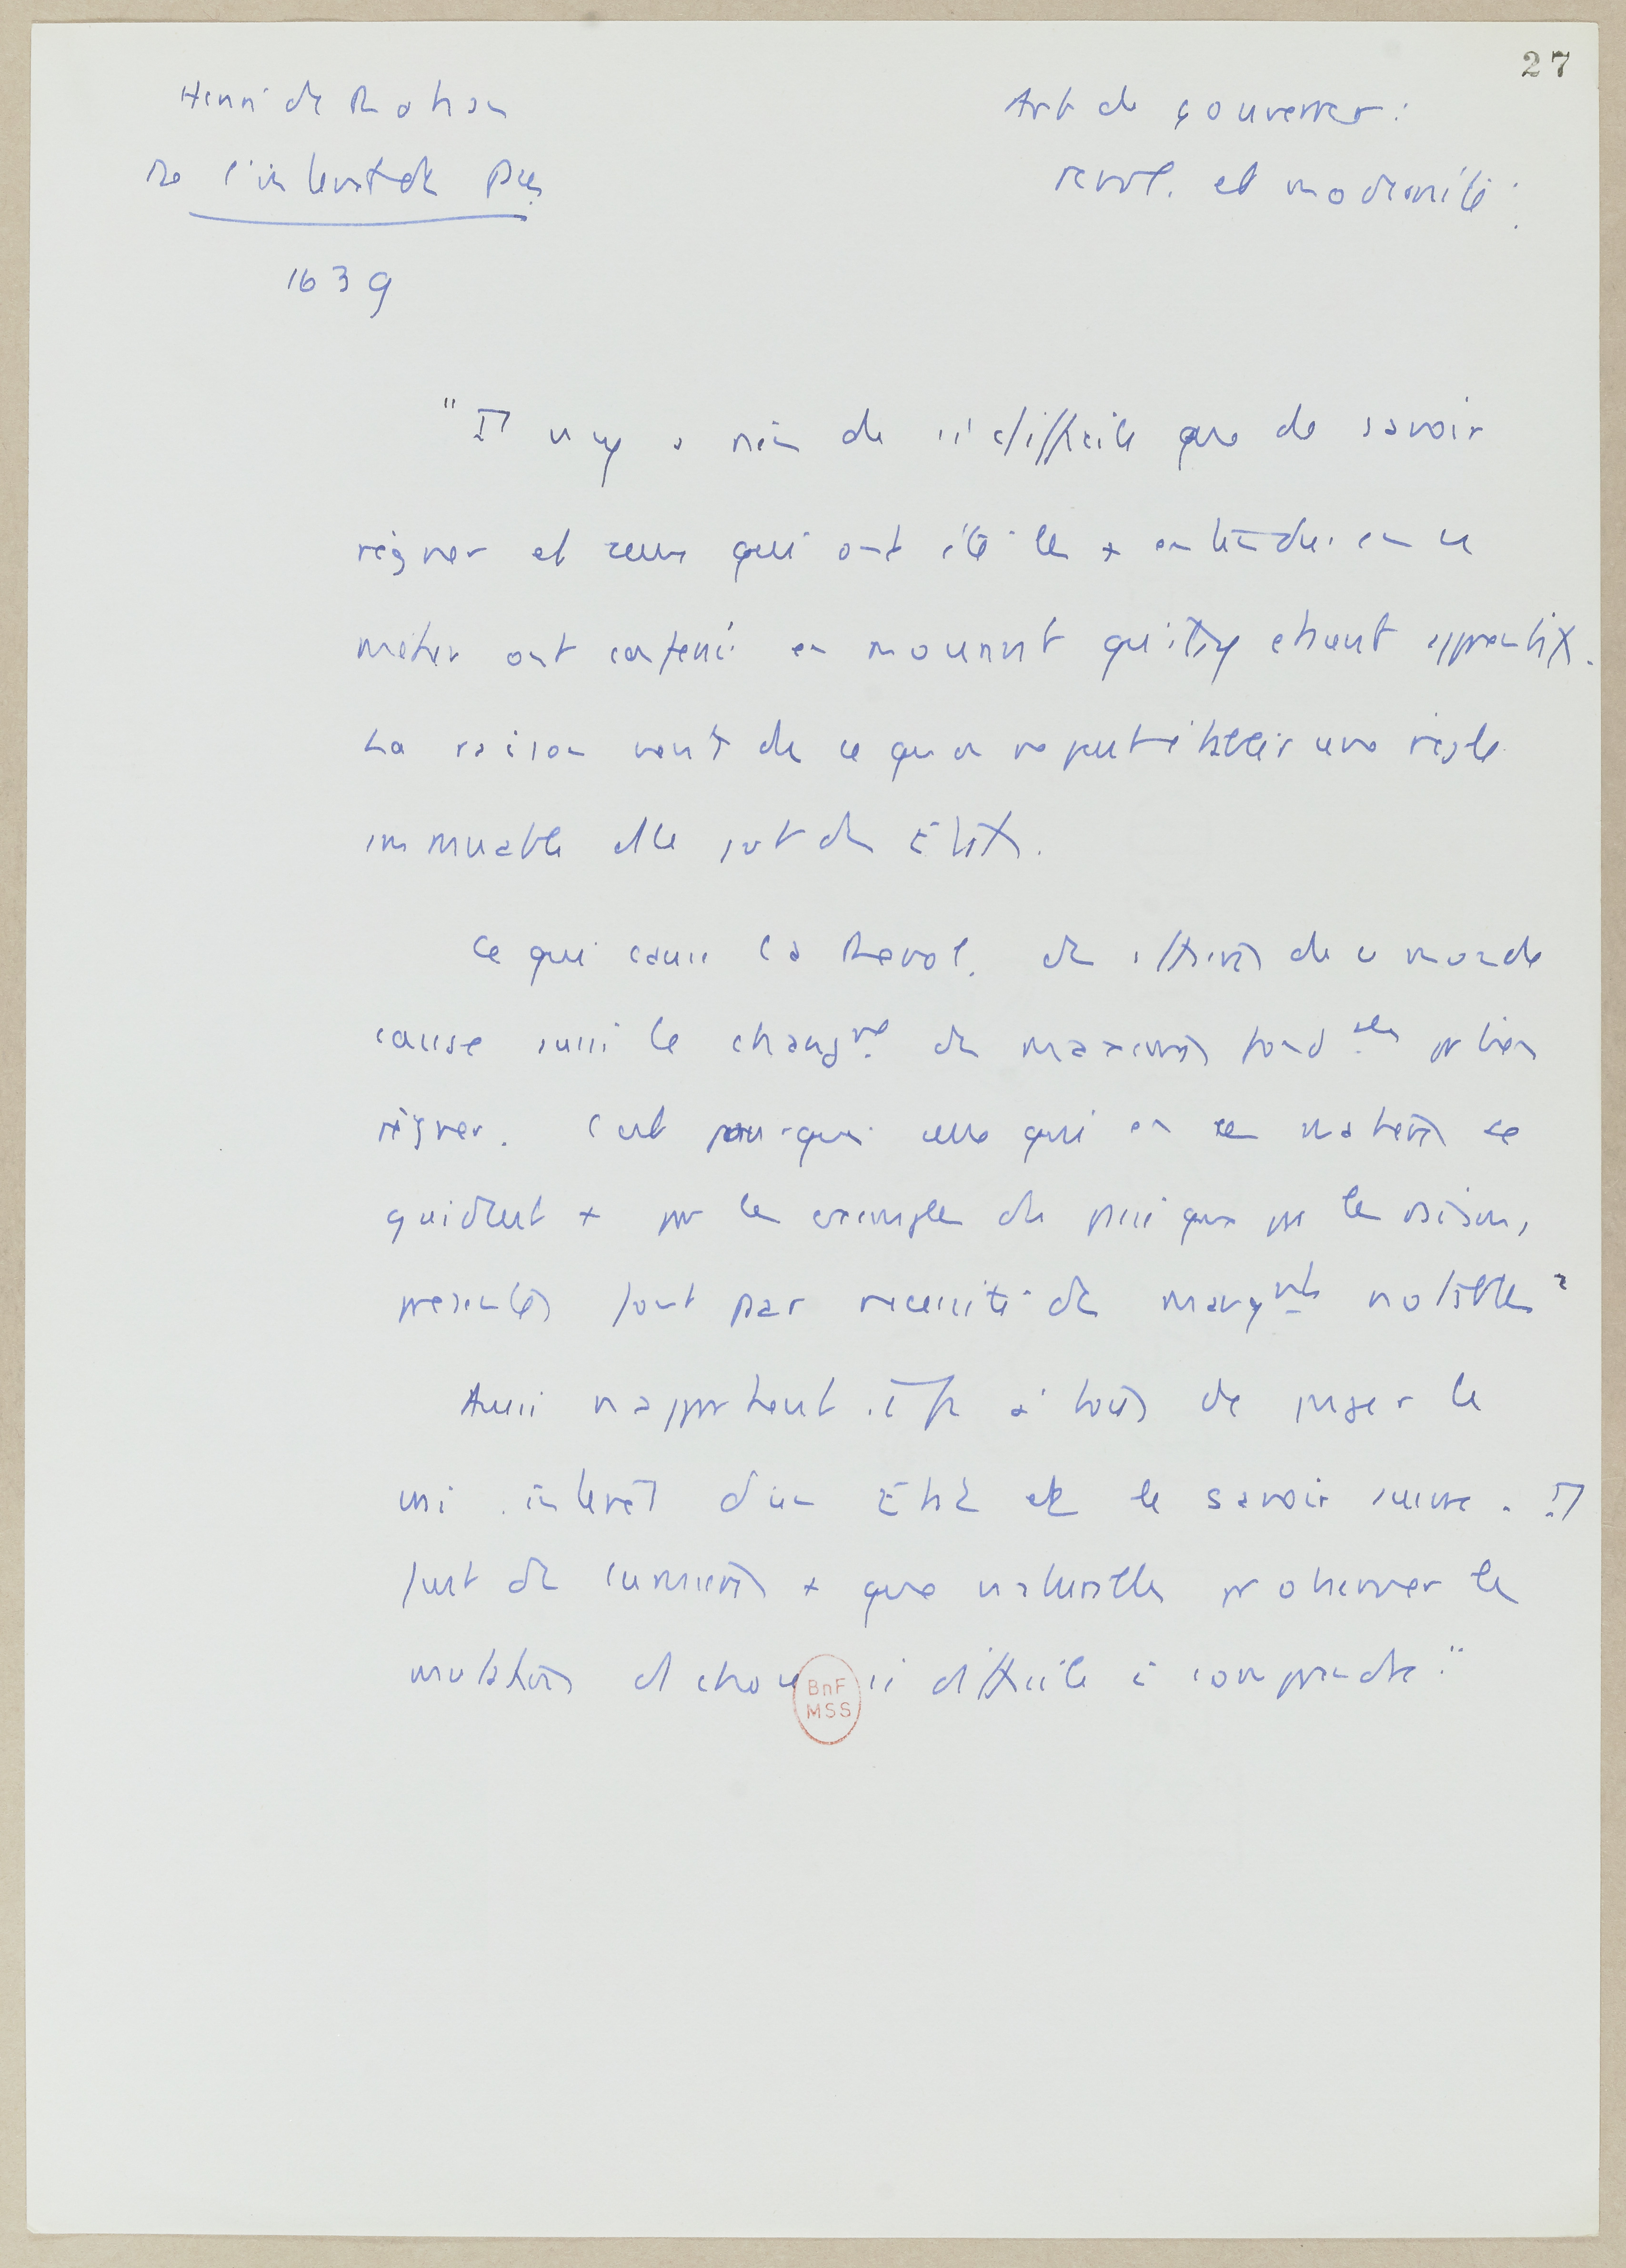 27
Henri de Rohan
De l'interet des Pces
1639
Art de gouverner :
revol. et modernité :
"Il n'y a rien de si difficile que de savoir
régner et ceux qui ont été les + entendus en ce
métier ont confessé en mourant qu'ils y etaient apprentifs.
La raison vient de ce qu'on ne peut établir une règle
immuable ds le gvt des Etats.
Ce qui cause la Revol. des affaires de ce monde
cause aussi le changt des maximes fondles pr bien
régner. C'est pourquoi ceux qui en ces matières se
guident + par les exemples du passé que par les raisons
presentes font par necessité des manqmts notables"
Aussi n'appartient-il pas à tous de juger le
vrai interet d'un Etat et le savoir suivre. Il
faut des lumières + que naturelles pr observer les
mutations et choses si difficiles à comprendre."
BnF
MSS